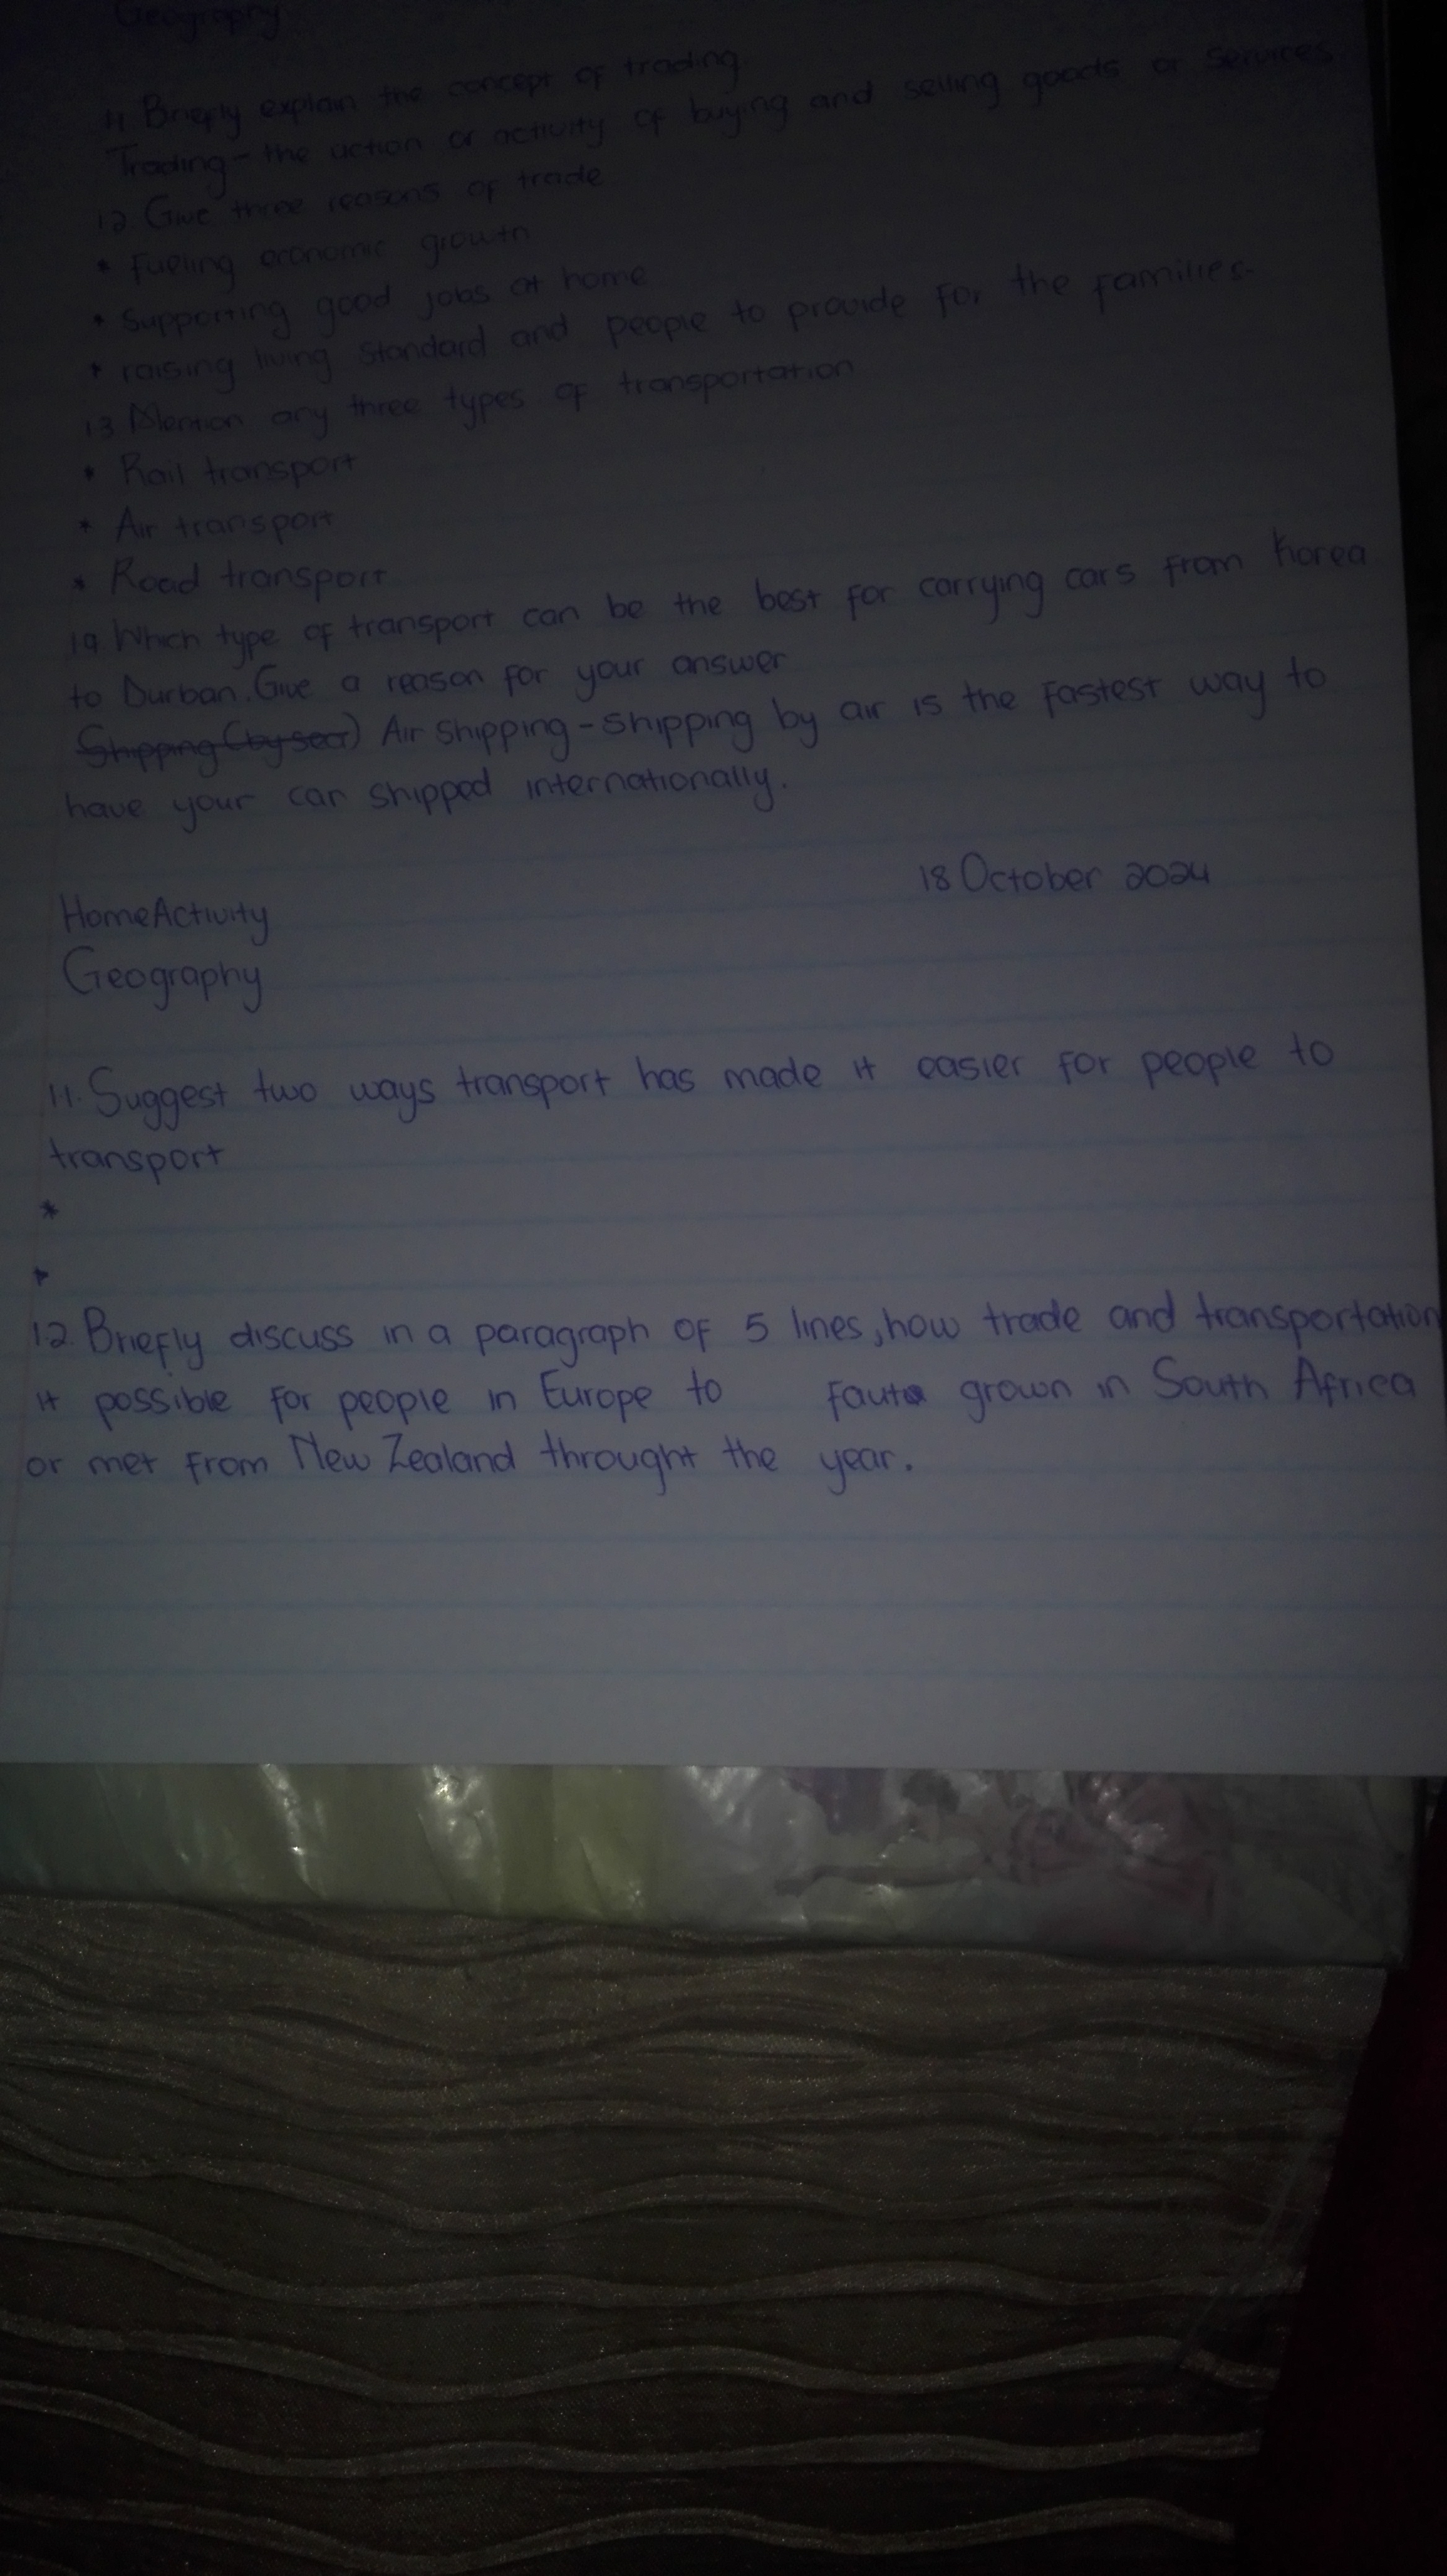 Geography
11 Briefly explain the concept of trading
Trading - the action or activity of buying and selling goods or services
12. Give three reasons of trade
* Fueling economic growth
* Supporting good jobs at home
* raising living standard and people to provide for the families.
13 Mention any three types of transportation
* Rail transport
* Air transport
* Road transport
19 Which type of transport can be the best for carrying cars from Korea
to Durban. Give a reason for your answer
Shipping (by sea) Air Shipping - Shipping by air is the fastest way to
have your car shipped internationally.
18 October 2024
HomeActivity
Geography
1.1. Suggest two ways transport has made it easier for people to
transport
*
*
1.2. Briefly discuss in a paragraph of 5 lines, how trade and transportation
it possible for people in Europe to grown in South Africa
or met from New Zealand throught the year.